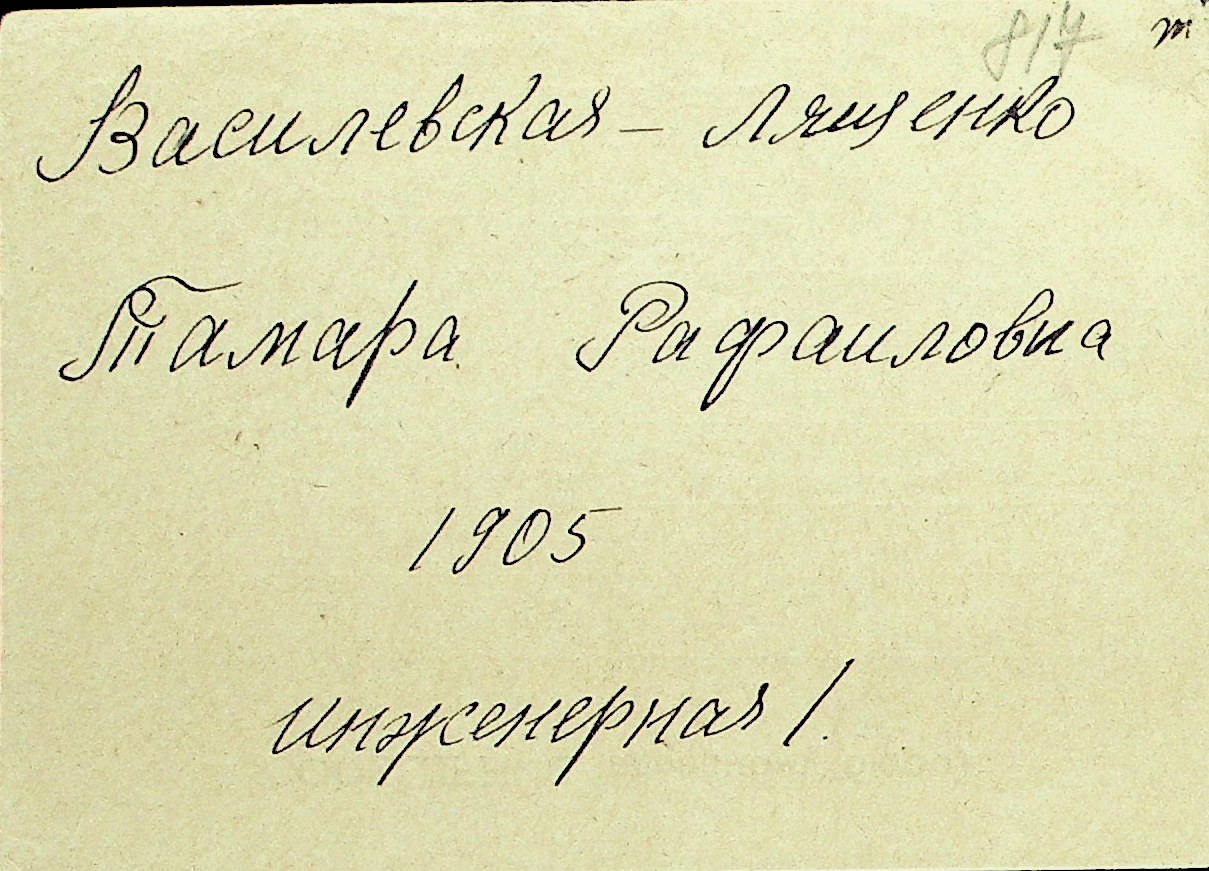 817 т
Василевская - Лященко
Тамара Рафаиловна
1905
инженерная 1.